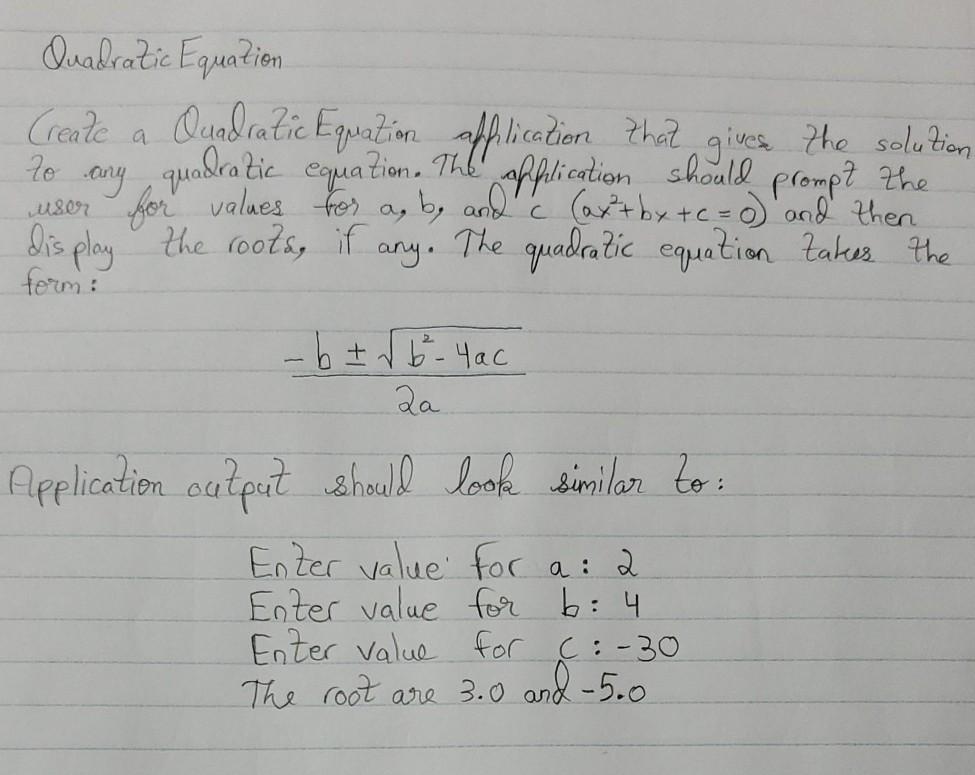 Quadratic Equation
Create a Quadratic Equation application that gives the solution
to any quadratic equation. The application should prompt the
user for values for a, b, and c (ax²+bx+c=0) and then
display the roots, if any. The quadratic equation takes the
form:
-b ± √b²-4ac
2a
Application output should look similar to:
Enter value for a: 2
Enter value for b: 4
Enter value for c: -30
The root are 3.0 and -5.0